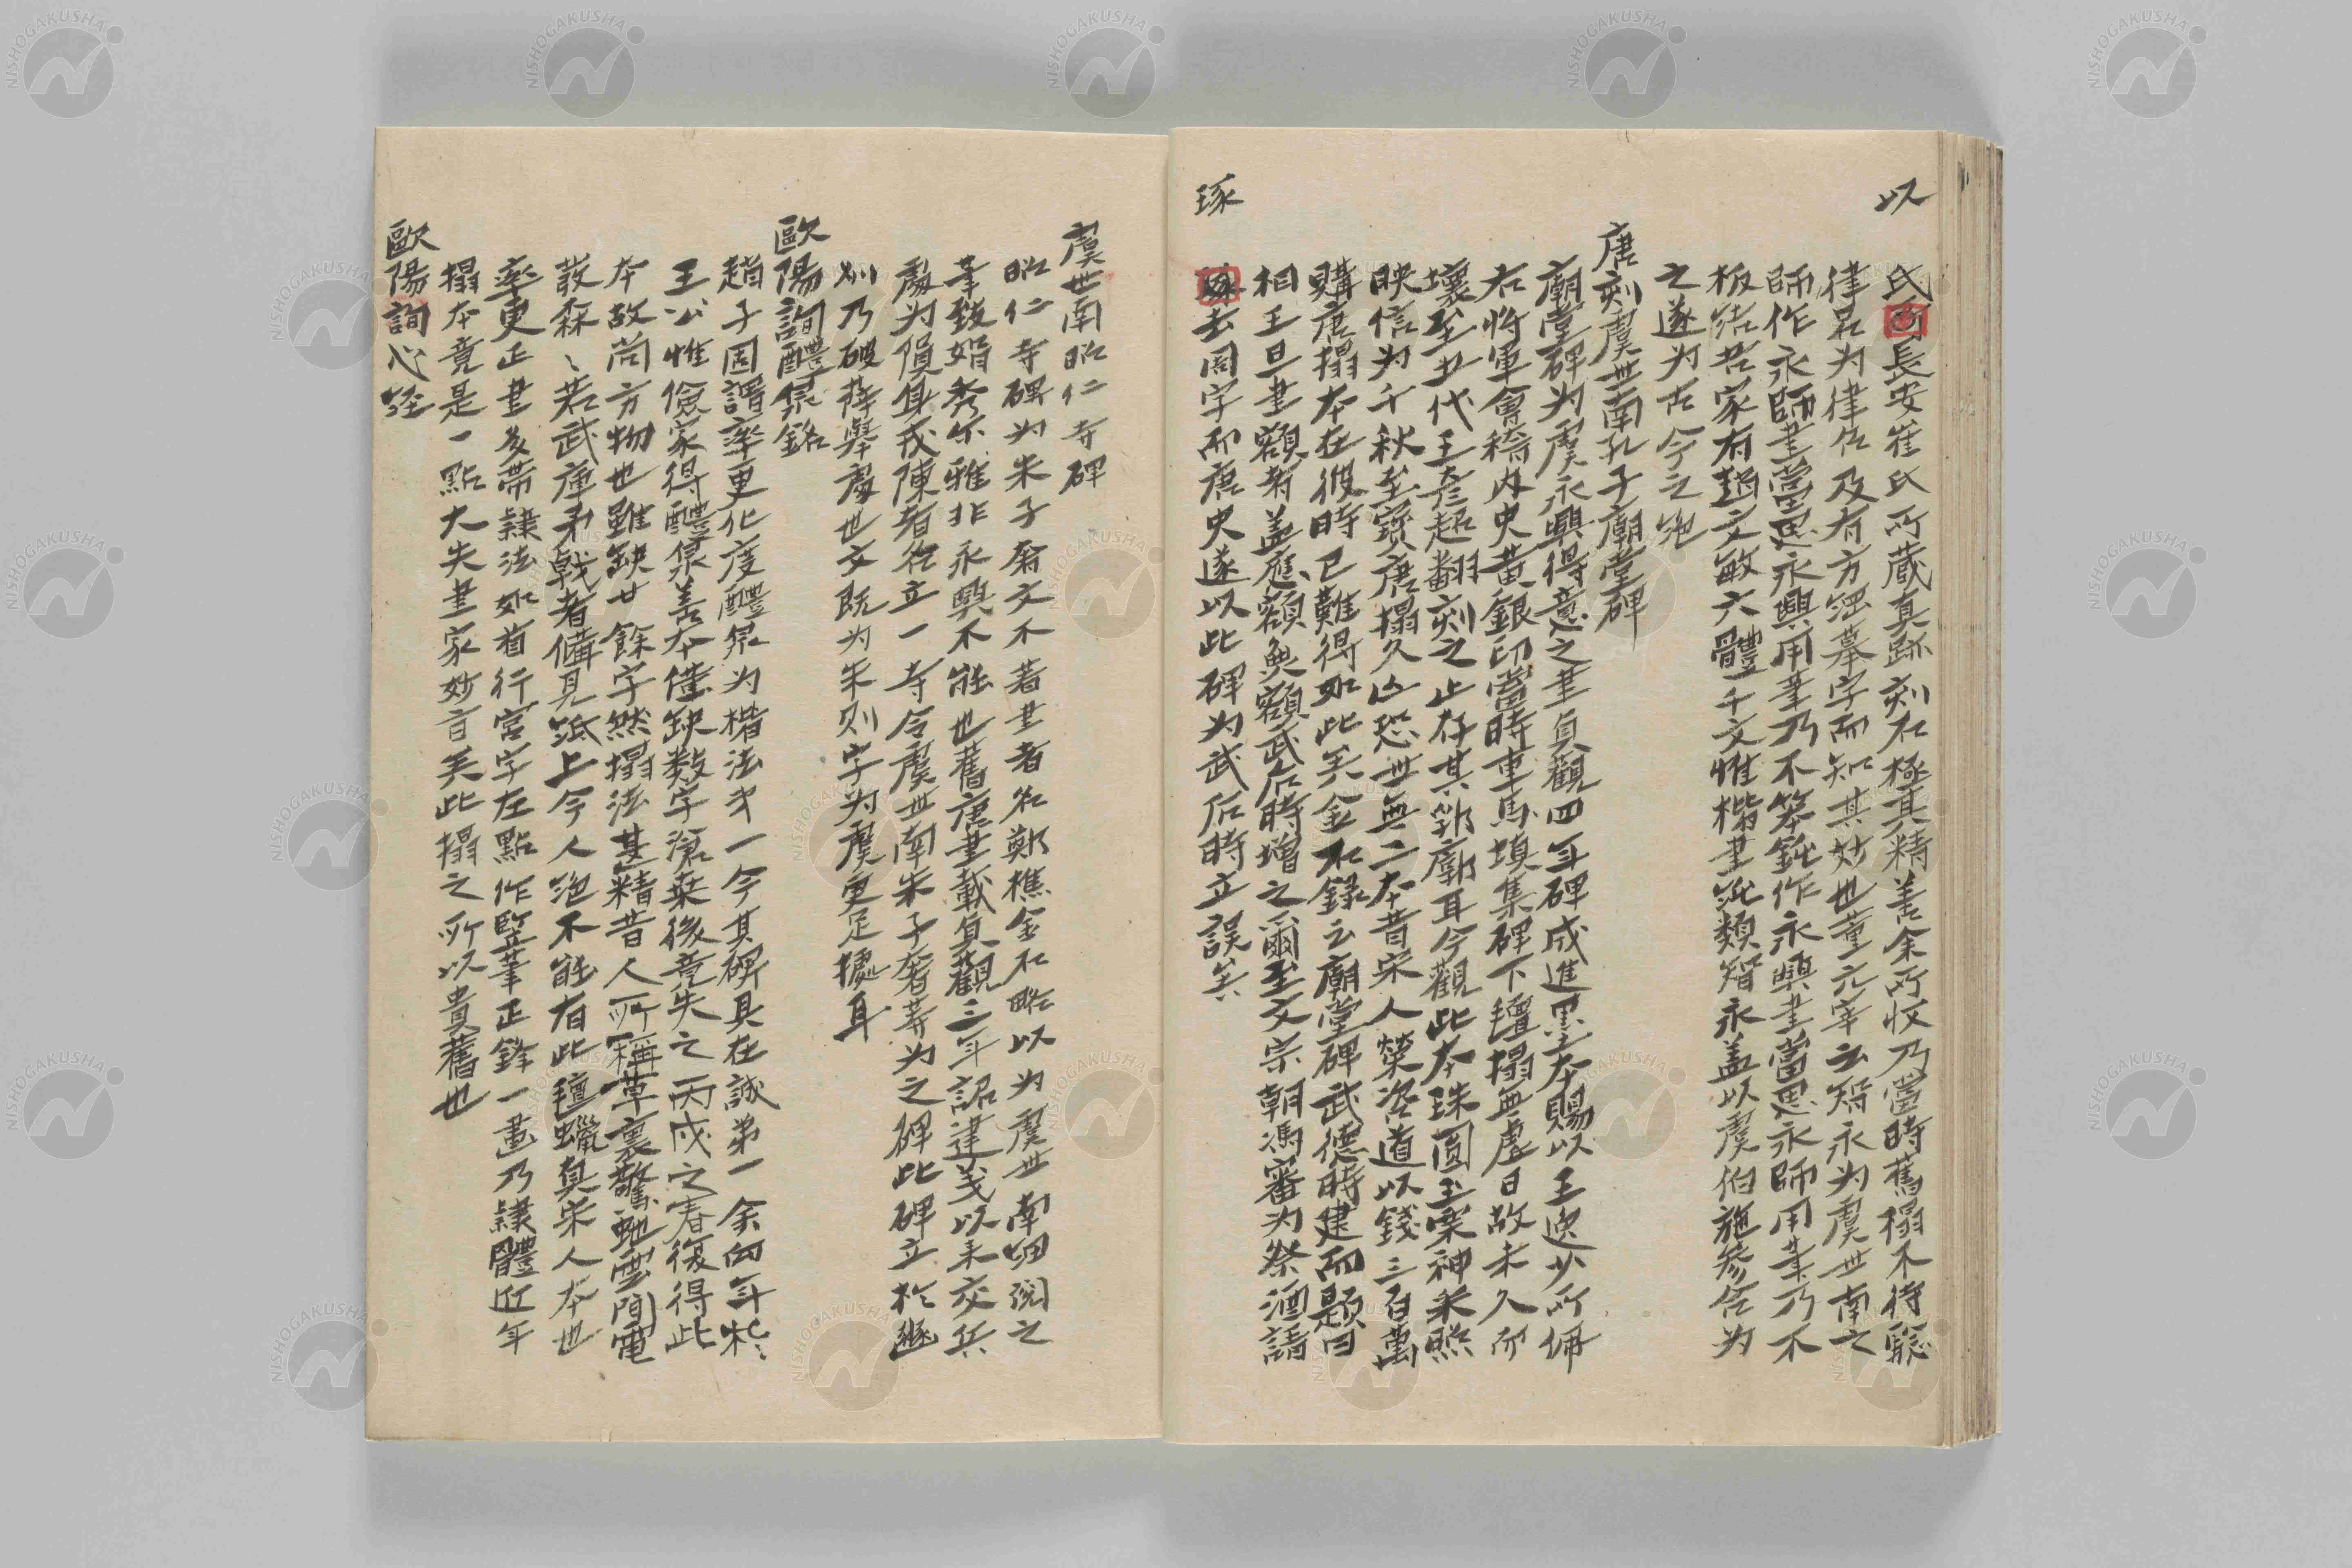 以
氏所長安崔氏所藏真跡刻石極其精善余所收乃當時舊搨不待
律召为律公及有方經摹字而知其妙也董元宰云智永为虞世南之
師作永師書當思永興用筆乃不笨鈍作永興書當思永師用筆乃不
板結若家有趙文敏六體千文惟楷書沘類智永盖以虞伯施參合为
之遂为古今之絶
唐刻虞世南孔子廟堂碑
廟堂碑为虞永興得意之書貞觀四年碑成進墨本賜以王逸少所佩
右將軍會稽內史黃銀印當時車馬填集碑下氊搨無虛日故未久所
壞至五代王彥超翻刻之止存其郛廓耳今觀此本珠圓玉栗神采照
映信为千秋至寶唐搨久亡恐世無二本昔宋人榮咨道以錢三百萬
購唐搨本在彼時已難得如此矣金石錄云廟堂碑武德時建而題曰
相王旦書額者盖應額無額武后時增之爾至文宗朝馮審为祭酒請
琢
去周字而唐史遂以此碑为武后時立誤矣
虞世南昭仁寺碑
昭仁寺碑为朱子奢文不著書者名鄭樵金石略以为虞世南細閱之
筆致娟秀尔雅非永興不能也舊唐書載貞觀三年詔建義以来交兵
處为隕身戎陳者各立一寺令虞世南朱子奢等为之碑此碑立於豳
州乃破薛舉處也文既为朱則字为虞更足據耳
歐陽詢醴泉銘
趙子固謂率更化度醴泉为楷法第一今其碑具在誠第一余向年於
王公惟儉家得醴泉善本僅缺数字滄桑後竟失之丙戌之春復得此
本故尚方物也雖缺廿餘字然搨法甚精昔人所稱草裏驚虵雲間電
發森〻若武庫矛戟者備見紙上今人絶不能有此氊蠟真宋人本也
率更正書多帶隸法如首行宮字左點作竪筆正鋒一畫乃隸體近年
搨本竟是一點大失書家妙旨矣此搨之所以貴舊也
歐陽詢心経